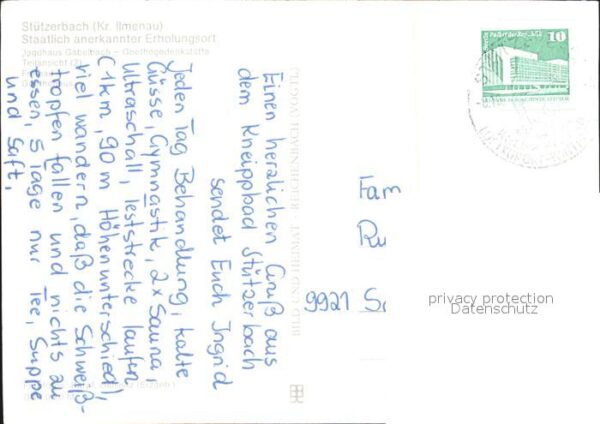 Stützerbach (Kr. Ilmenau)
Staatlich anerkannter Erholungsort
Jagdhaus Gabelbach - Goethegedenkstätte
Teilansicht (2)
Einen herzlichen Gruß aus
dem Kneippbad Stützerbach
sendet Euch Ingrid
Jeden Tag Behandlung, kalte
Güsse, Gymnastik, 2x Sauna,
Ultraschall, Teststrecke laufen
(1km, 90 m Höhenunterschied),
viel wandern, daß die Schweiß-
tropfen fallen und nichts zu
essen, 5 Tage nur Tee, Suppe
und Saft,
10
Fam
Ru
9921
privacy protection
Datenschutz